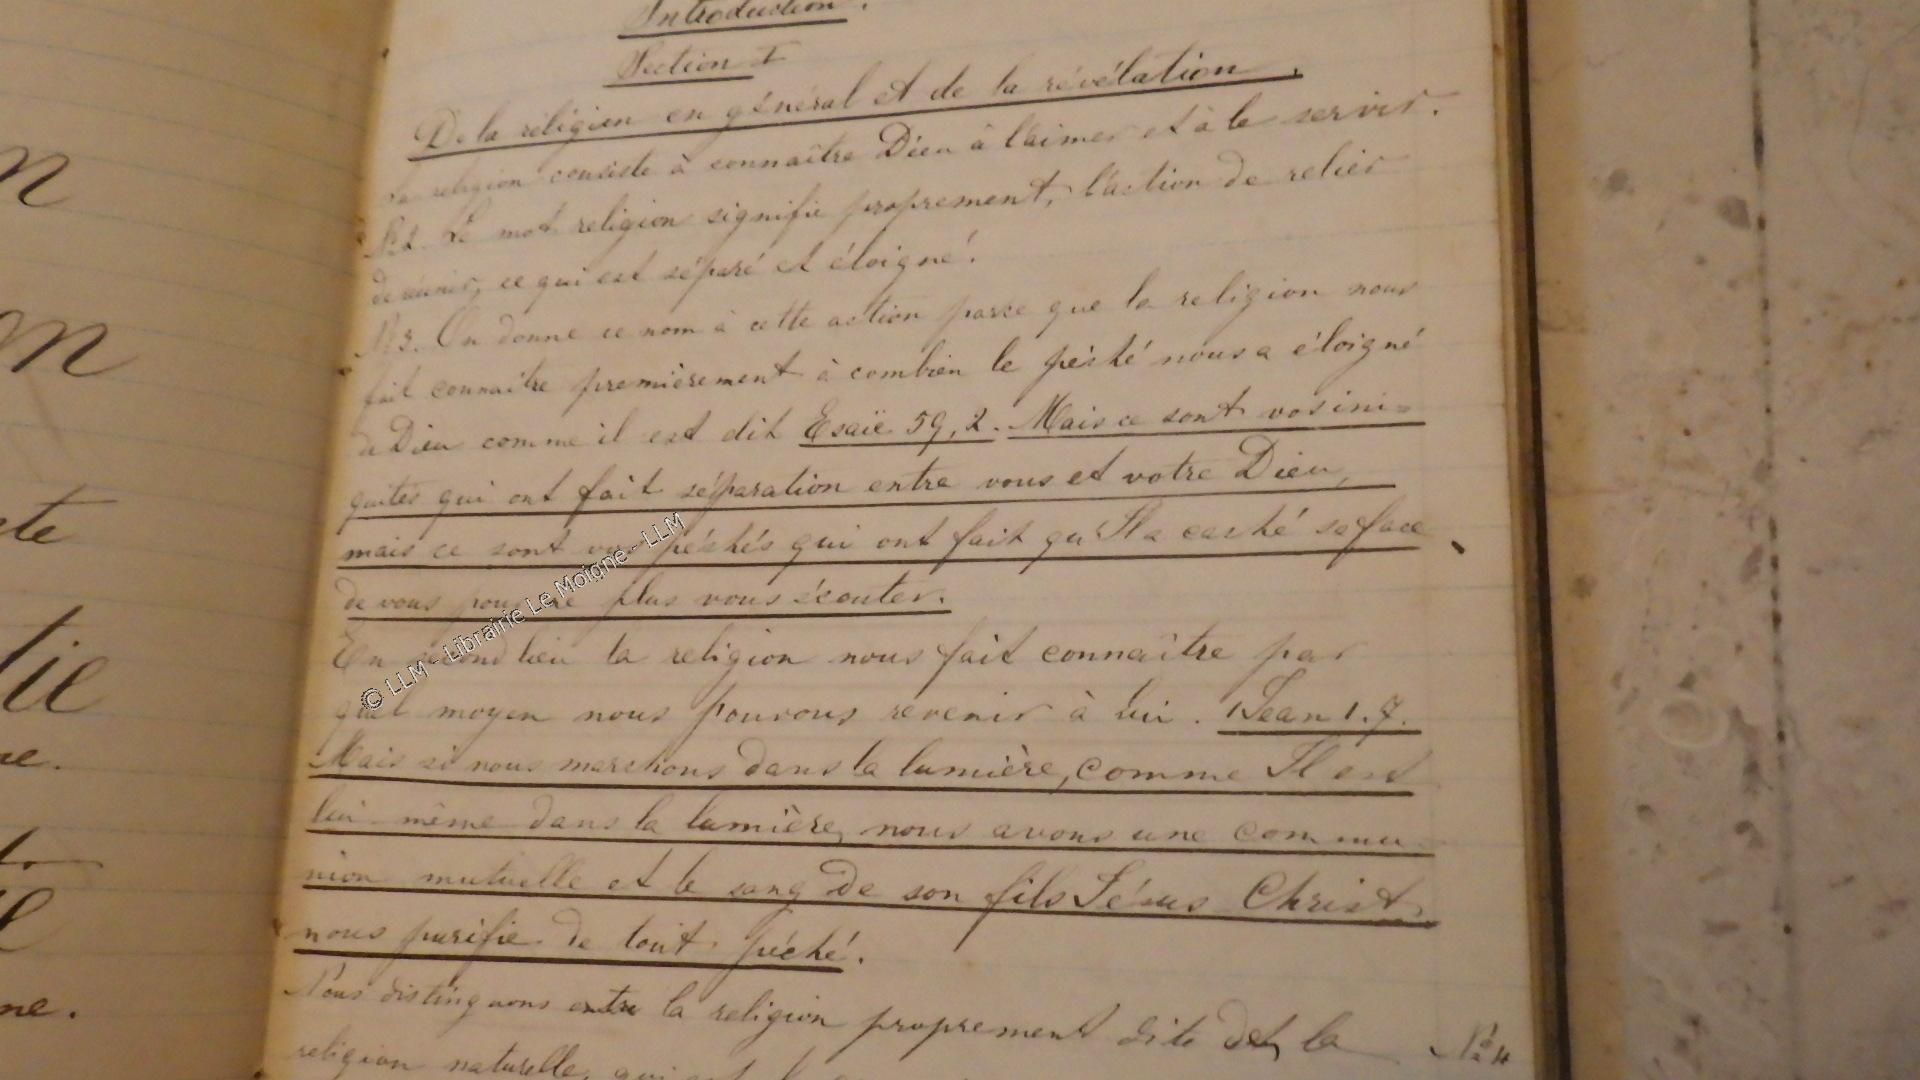 Introduction.
Section I
De la réligion en général et de la révélation.
La religion consiste à connaître Dieu à l'aimer et à le servir.
N° 2. Le mot religion signifie proprement, l'action de relier
de réunir, ce qui est séparé et éloigné.
N° 3. On donne ce nom à cette action parce que la religion nous
fait connaître premièrement à combien le péché nous a éloigné
de Dieu comme il est dit Esaïe 59, 2. Mais ce sont vos ini-
quités qui ont fait séparation entre vous et votre Dieu,
mais ce sont vos péchés qui ont fait qu'Il a caché sa face
de vous pour ne plus vous écouter.
En second lieu la religion nous fait connaître par
quel moyen nous pouvons revenir à lui. 1 Jean 1. 7.
Mais si nous marchons dans la lumière, comme Il est
lui-même dans la lumière, nous avons une commu-
nion mutuelle et le sang de son fils Jésus Christ
nous purifie de tout péché.
Nous distinguons entre la religion proprement dite et la N° 4
religion naturelle, qui est
n
m
cte
tie
ne.
ne.
© LLM - Librairie Le Moigne - LLM